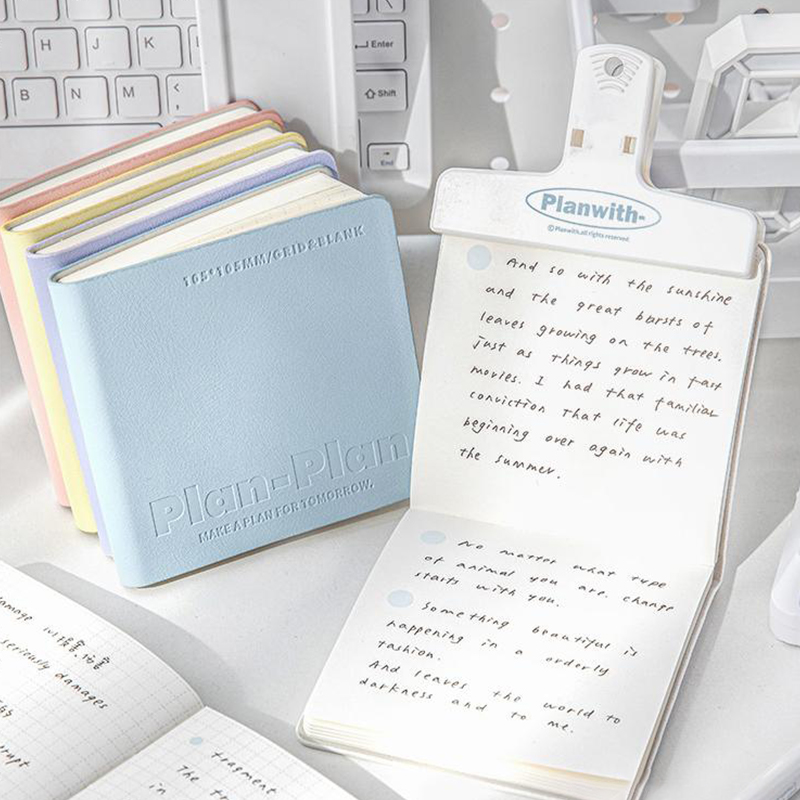 K
H
J
K
Enter
B
N
M
<
Shift
End
105*105MM/GRID&BLANK
Plan-Plan
MAKE A PLAN FOR TOMORROW.
Planwith-
©Planwith.all rights reserved
And so with the sunshine
and the great bursts of
leaves growing on the trees.
just as things grow in fast
movies. I had that familiar
conviction that life was
beginning over again with
the summer.
No matter what type
of animal you are. change
starts with you.
Something beautiful is
happening in a orderly
fashion.
And leaves the world to
darkness and to me.
damage
seriously damages
fragment
The
in